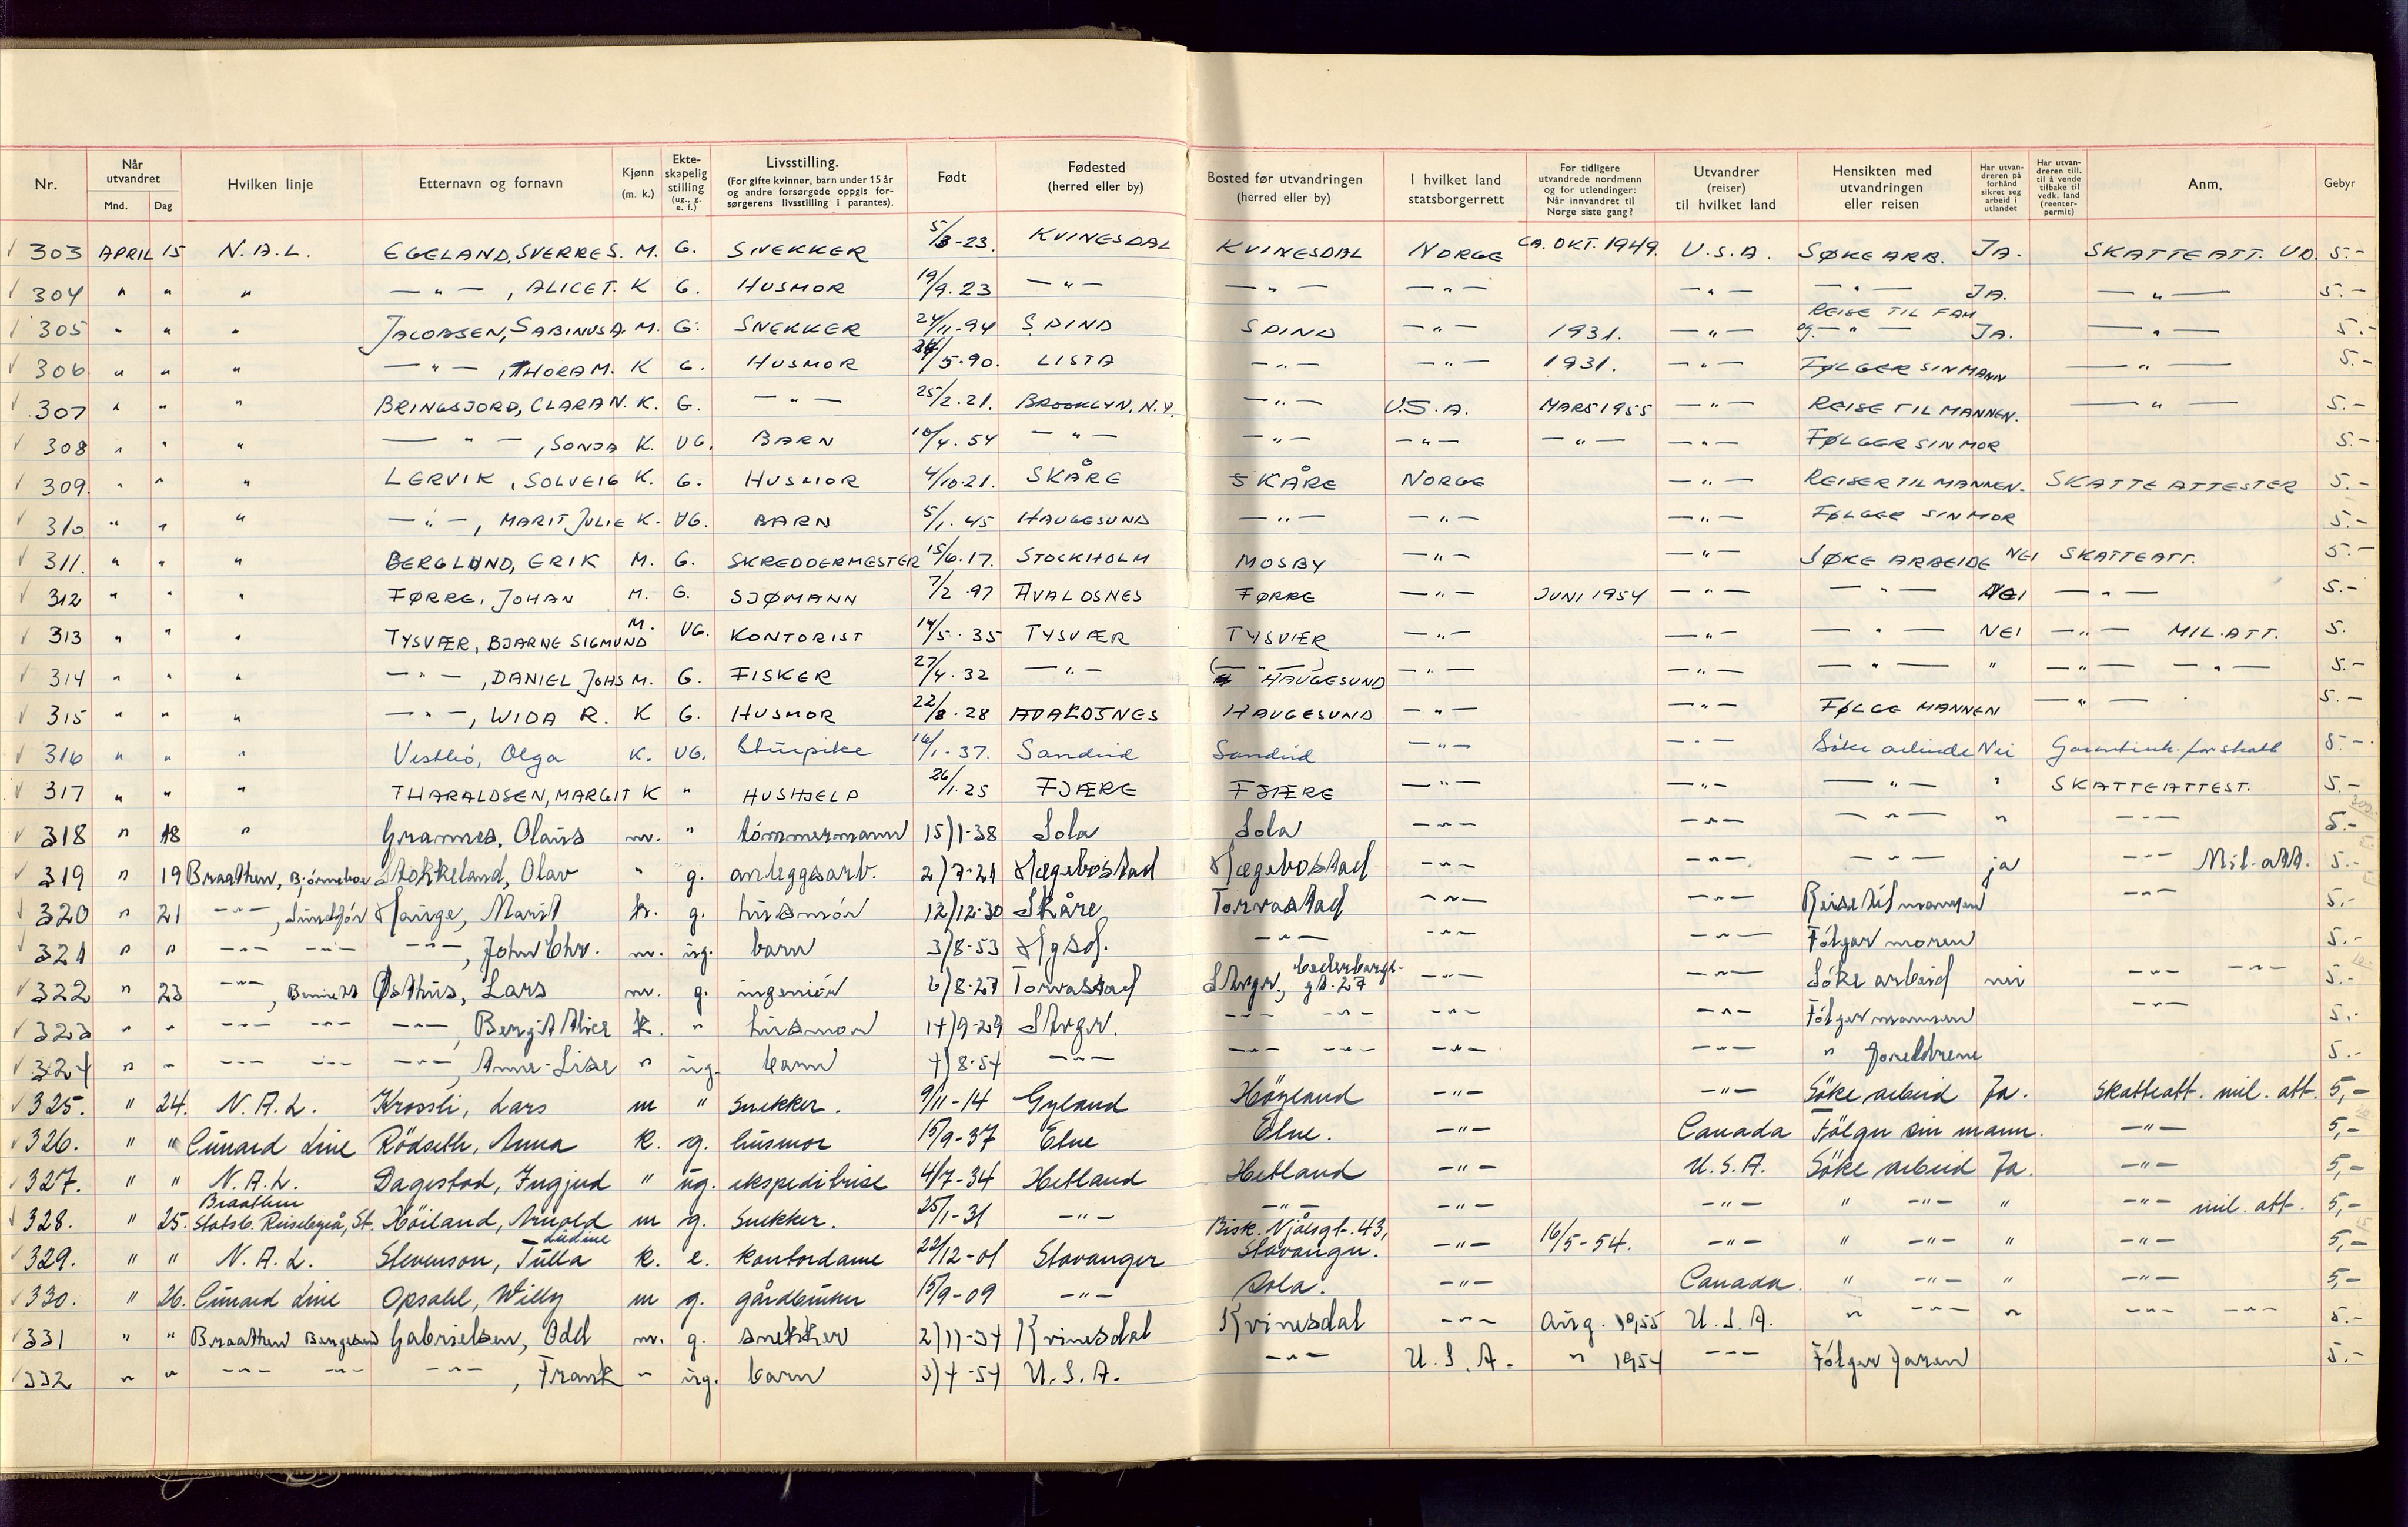 Nr. | Når utvandret Mnd. Dag | Hvilken linje | Etternavn og fornavn | Kjønn (m. k.) | Ekte-skapelig stilling (ug., g. e. f.) | Livsstilling. (For gifte kvinner, barn under 15 år og andre forsørgede oppgis for-sørgerens livsstilling i parantes). | Født | Fødested (herred eller by) | Bosted før utvandringen (herred eller by) | I hvilket land statsborgerrett | For tidligere utvandrede nordmenn og for utlendinger: Når innvandret til Norge siste gang? | Utvandrer (reiser) til hvilket land | Hensikten med utvandringen eller reisen | Har utvan-dreren på forhånd sikret seg arbeid i utlandet | Har utvan-dreren till. til å vende tilbake til vedk. land (reenter-permit) | Anm. | Gebyr
303 APRIL 15 N.A.L. EGELAND, SVERRE S. M. G. SNEKKER 5/3-23. KVINESDAL KVINESDAL NORGE CA. OKT. 1949. U.S.A. SØKE ARB. JA. SKATTEATT. UD. 5.-
304 " " " — " —, ALICE T. K G. HUSMOR 19/9.23 — " — — " — — " — — " — — " — JA. — " — 5.-
305 " " " JACOBSEN, SABINUS A. M. G. SNEKKER 24/11.94 SPIND SPIND — " — 1931. — " — REISE TIL FAM og — " — JA. — " — 5.-
306 " " " — " —, THORA M. K G. HUSMOR /5.90. LISTA — " — — " — 1931. — " — FØLGER SIN MANN — " — 5.-
307 " " " BRINGSJORD, CLARA N. K. G. — " — 25/2.21. BROOKLYN. N.Y. — " — U.S.A. MARS 1955 — " — REISE TIL MANNEN. — " — 5.-
308 " " " — " —, SONJA K. UG. BARN 10/4.54 — " — — " — — " — — " — — " — FØLGER SIN MOR 5.-
309. " " " LERVIK, SOLVEIG K. G. HUSMOR 4/10.21. SKÅRE SKÅRE NORGE — " — REISER TIL MANNEN. SKATTE ATTESTER 5.-
310 " " " — " —, MARIT JULIE K. UG. BARN 5/1.45 HAUGESUND — " — — " — — " — FØLGER SIN MOR 5.-
311. " " " BERGLUND, ERIK M. G. SKREDDERMESTER 15/6.17. STOCKHOLM MOSBY — " — — " — SØKE ARBEIDE NEI SKATTEATT. 5.-
312 " " " FØRRE, JOHAN M. G. SJØMANN 7/2.97 AVALDSNES FØRRE — " — JUNI 1954 — " — — " — NEI — " — 5.-
313 " " " TYSVÆR, BJARNE SIGMUND M. UG. KONTORIST 14/5.35 TYSVÆR TYSVÆR — " — — " — — " — NEI — " — MIL.ATT. 5.
314 " " " — " —, DANIEL JOHS M. G. FISKER 27/4.32 — " — (— " —) HAUGESUND — " — — " — — " — " — " — — " — 5.-
315 " " " — " —, WIDA R. K G. HUSMOR 22/8.28 AVALDSNES HAUGESUND — " — — " — FØLGE MANNEN — " — 5.-
316 " " " Vestbø, Olga K. UG. Stuepike 16/1-37. Sandeid Sandeid — " — — " — Søke arbeide Nei Garantierk. for skatt 5.-
317 " " " THARALDSEN, MARGIT K " HUSHJELP 26/1.25 FJÆRE FJÆRE — " — — " — — " — " SKATTEATTEST. 5.-
318 " 18 " Grannes, Olaus m. " tømmermann 15)1-38 Sola Sola — " — — " — — " — " — " — 5.-
319 " 19 Braathen, Stokkeland, Olav " g. anleggsarb. 2)7-21 Hægebostad Hægebostad — " — — " — — " — ja — " — Mil. att. 5.-
320 " 21 — " —, Hauge, Marit k. g. husmor 12/12-30 Skåre Torvastad — " — — " — Reise til mannen — " — 5.-
321 " " — " — — " — — " —, John Chr. m. ug. barn 3)8-53 Hgsd. — " — — " — — " — Følger moren 5.-
322 " 23 — " —, Bennett Østhus, Lars m. g. ingeniør 6)8-27 Torvastad Stvgr., gt. 27 — " — — " — Søke arbeid nei — " — — " — 5.-
323 " " — " — — " — — " —, Bergit Alice k. " husmor 14)9-29 Stvgr. — " — — " — — " — — " — Følger mannen — " — 5.-
324 " " — " — — " — — " —, Anne-Lise " ug. barn 4)8-54 — " — — " — — " — — " — — " — " foreldrene 5.-
325. " 24. N.A.L. Krossli, Lars m " Snekker. 9/11-14 Gyland Høyland — " — — " — Søke arbeid Ja. Skatteatt. mil. att. 5,-
326. " " Cunard Line Rødseth, Anna k. g. husmor 15/9-37 Etne Etne. — " — Canada Følger sin mann. — " — 5,-
327. " " N.A.L. Dagestad, Ingjerd " ug. ekspeditrise 4/7-34 Hetland Hetland — " — U.S.A. Søke arbeid Ja. — " — 5,-
328. " 25. Braathen Statsb. Reisebyrå, St. Høiland, Arnold m g. Snekker. 25/1-31 — " — — " — — " — — " — " — " — " — " — mil. att. 5,-
329. " " N.A.L. Stevenson, Tulla Ludine k. e. kontordame 22/12-01 Stavanger Bisk. Njålsgt. 43, Stavanger. — " — 16/5-54. — " — " — " — " — " — 5,-
330. " 26. Cunard Line Opsahl, Willy m g. gårdbruker 15/9-09 — " — Sola. — " — Canada. " — " — " — " — 5,-
331 " " Braathen Gabrielsen, Odd m. g. snekker 2)11-34 Kvinesdal Kvinesdal — " — Aug. 1955 U.S.A. " — " — " — " — — " — 5.-
332 " " — " — — " — — " —, Frank " ug. barn 3)4-54 U.S.A. — " — U.S.A. " 1954 — " — Følger faren 5.-